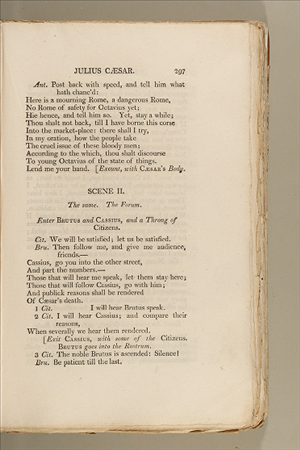 JULIUS CÆSAR. 297
Ant. Post back with speed, and tell him what
hath chanc'd:
Here is a mourning Rome, a dangerous Rome,
No Rome of safety for Octavius yet;
Hie hence, and tell him so. Yet, stay a while;
Thou shalt not back, till I have borne this corse
Into the market-place: there shall I try,
In my oration, how the people take
The cruel issue of these bloody men;
According to the which, thou shalt discourse
To young Octavius of the state of things.
Lend me your hand. [Exeunt, with CÆSAR's Body.
SCENE II.
The same. The Forum.
Enter BRUTUS and CASSIUS, and a Throng of
Citizens.
Cit. We will be satisfied; let us be satisfied.
Bru. Then follow me, and give me audience,
friends.—
Cassius, go you into the other street,
And part the numbers.—
Those that will hear me speak, let them stay here;
Those that will follow Cassius, go with him;
And publick reasons shall be rendered
Of Cæsar's death.
1 Cit. I will hear Brutus speak.
2 Cit. I will hear Cassius; and compare their
reasons,
When severally we hear them rendered.
[Exit CASSIUS, with some of the Citizens.
BRUTUS goes into the Rostrum.
3 Cit. The noble Brutus is ascended: Silence!
Bru. Be patient till the last.